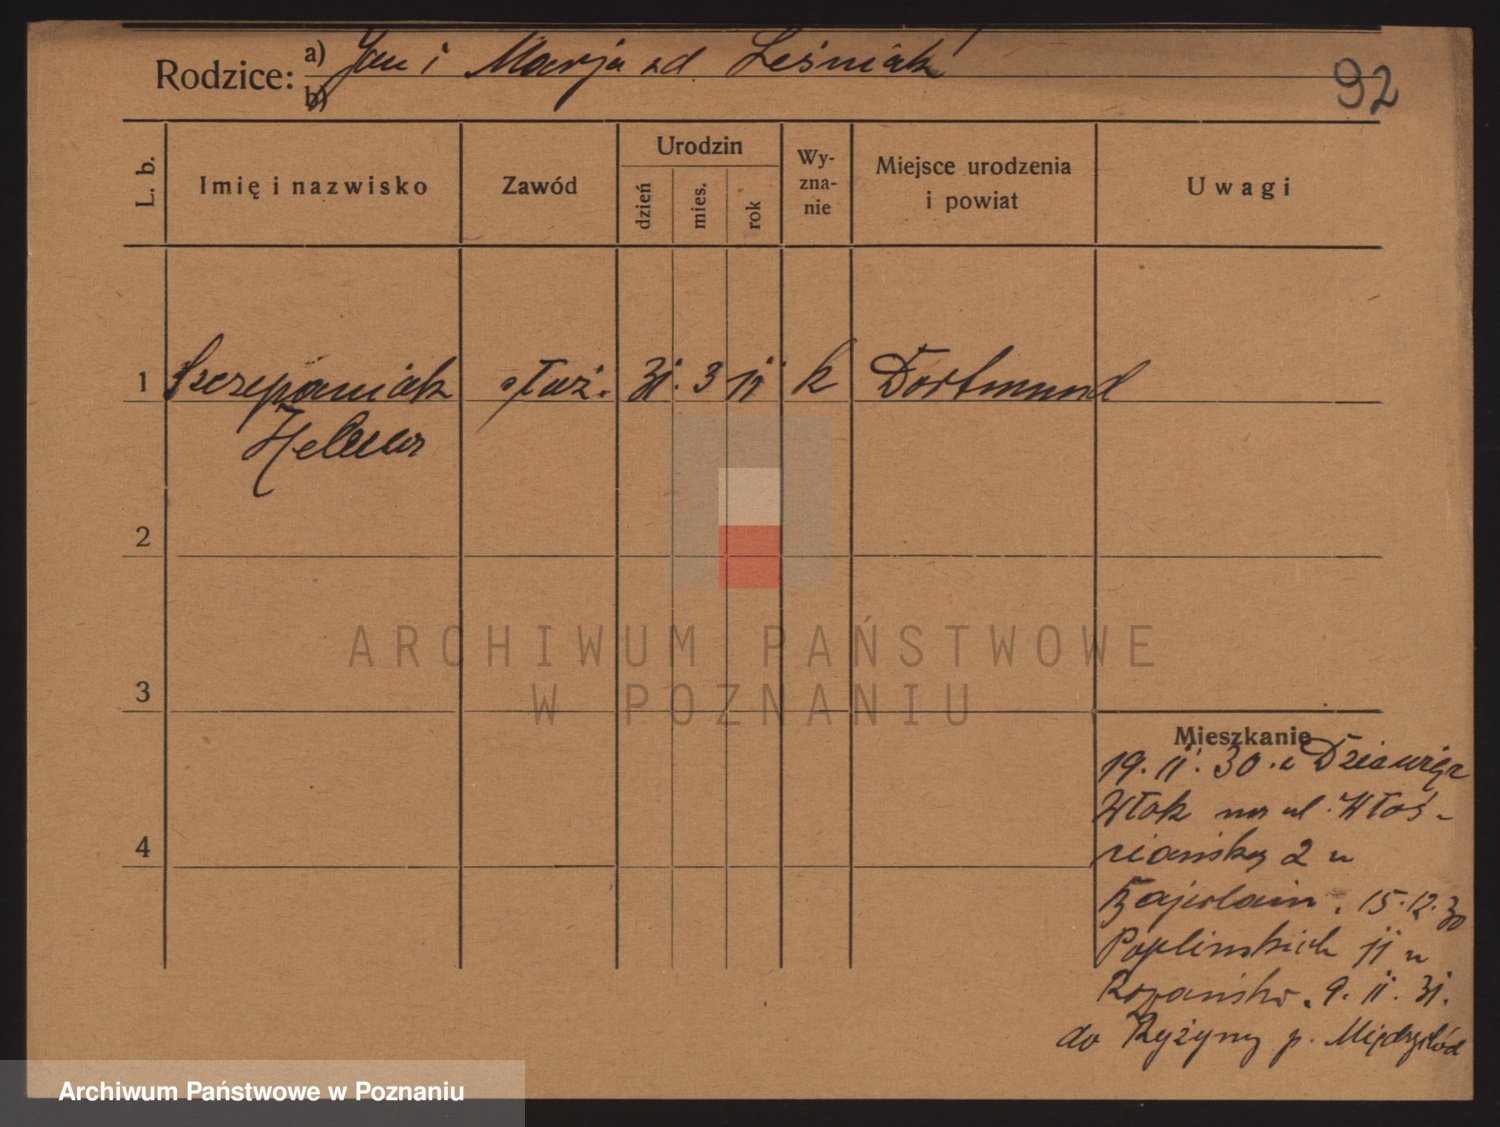 Rodzice: a) Jan i Marja zd. Leśniak
b)
92
L. b.
Imię i nazwisko
Zawód
Urodzin
dzień
mies.
rok
Wy-
zna-
nie
Miejsce urodzenia
i powiat
Uwagi
1 Szczepaniak służ. 31. 3 11 k Dortmund
Helena
2
3
4
Mieszkanie
19. 11. 30. z
na ul. Włoś-
ciańską 2 u
15.12.30
Poplińskich 11 u
9. 11. 31.
do Ryżyny p. Międzychód
ARCHIWUM PAŃSTWOWE
W POZNANIU
Archiwum Państwowe w Poznaniu